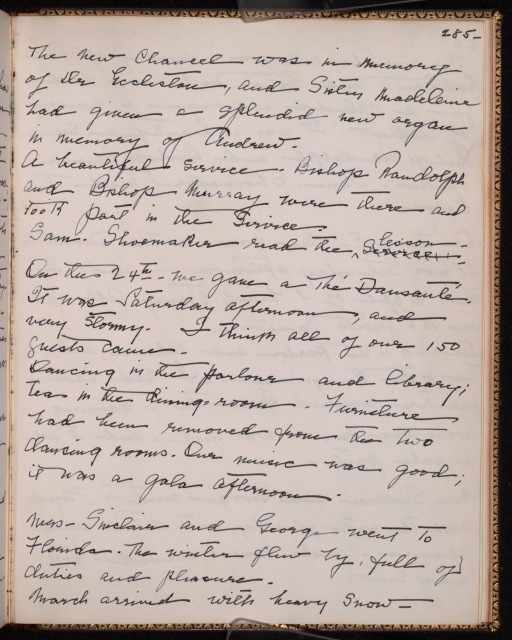 285-
The new Chancel was in memory
of Dr Eccleston, and Sister Madeleine
had given a splendid new organ
in memory of Andrew.
A beautiful service. Bishop Randolph
and Bishop Murray were there and
took part in the Service.
Sam. Shoemaker read the lesson.
On the 24th we gave a Thé Dansante.
It was Saturday afternoon, and
very stormy. I think all of our 150
guests came.
Dancing in the parlour and library;
tea in the dining-room. Furniture
had been removed from the two
dancing rooms. Our music was good;
it was a gala afternoon.
Mrs- Sinclair and George went to
Florida. The winter flew by, full of
duties and pleasure.
March arrived with heavy snow-